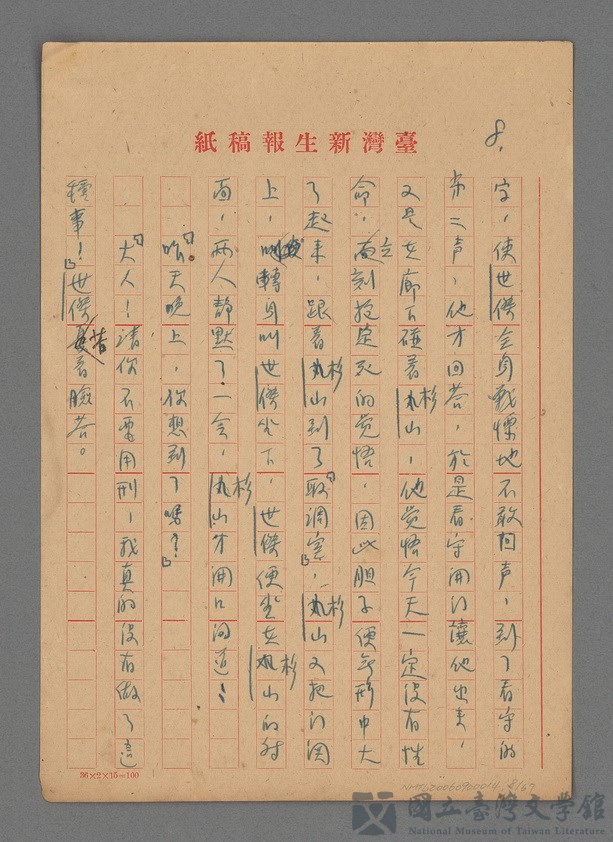 8.
臺灣新生報稿紙
字，使世傑全身戰慄地不敢回声，到了看守的
第二声，他才回答，於是看守開门讓他出去，
又是在廊下碰着杉山，他觉悟今天一定没有性
命，立刻抱定死的觉悟，因此胆子便無形中大
了起来，跟着杉山到了「取調室」，杉山又把门関
上，便轉身叫世傑坐下，世傑便坐在杉山的対
面，两人静默了一会，杉山才開口问道：
「昨天晚上，你想到了嗎？」
「大人！请你不要用刑，我真的没有做了這
種事！」世傑苦着臉答。
36×2×15=100
NMTL20060900014 8/67
國立臺灣文學館
National Museum of Taiwan Literature